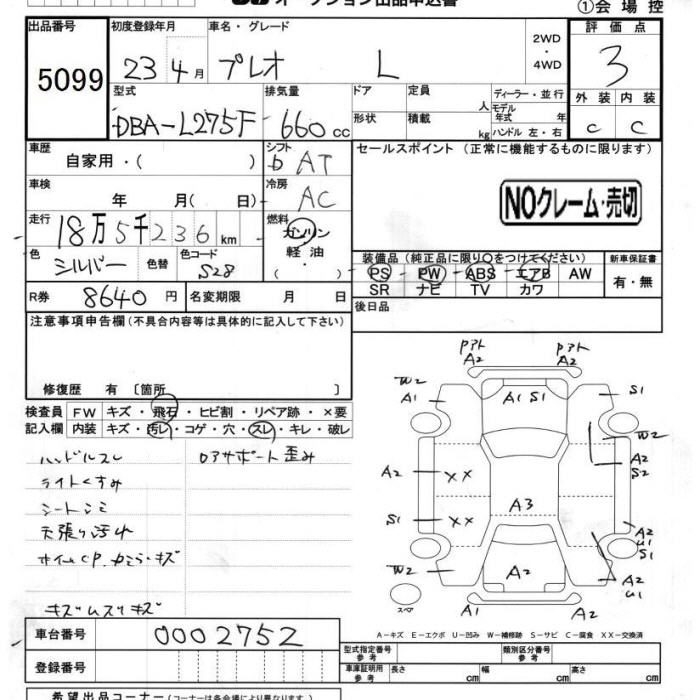 オークション出品申込書
①会場控
出品番号 5099
初度登録年月 23 4月
車名・グレード プレオ L
2WD ・ 4WD
評価点 3
外装 C 内装 C
型式 DBA-L275F
排気量 660 cc
ドア 定員 人
形状 積載 kg
ディーラー・並行
モデル年式 年
ハンドル 左・右
車歴 自家用・( )
シフト AT
セールスポイント (正常に機能するものに限ります)
NOクレーム・売切
車検 年 月( 日)
冷房 AC
走行 18万5千236km
燃料 ガソリン 軽油・
色 シルバー 色替 色コード S28
装備品 (純正品に限り○をつけてください)
PS ・ PW ・ ABS ・ エアB AW
SR ナビ TV カワ
新車保証書 有・無
R券 8640円 名変期限 月 日
後日品
注意事項申告欄 (不具合内容等は具体的に記入して下さい)
修復歴 有 〔箇所 〕
検査員記入欄
FW キズ・飛石・ヒビ割・リペア跡・×要
内装 キズ・汚レ・コゲ・穴・スレ・キレ・破レ
ハンドルスレ
ロアサポート歪み
ライトくすみ
シートシミ
天張り汚れ
キズムスリキズ
Pアト A2
Pアト A2
W2
A1
A1 S1
S1
W2
A2
S2
A2
XX
A3
S1
XX
A2
U1
S1
W2
A2
A2
U1
A1
A2
スペア
A-キズ E-エクボ U-凹み W-補修跡 S-サビ C-腐食 XX-交換済
車台番号 0002752
登録番号
型式指定番号 参考
類別区分番号 参考
車庫証明用 参考 長さ cm 幅 cm 高さ cm
希望出品コーナー (コーナーは各会場により異なります。)